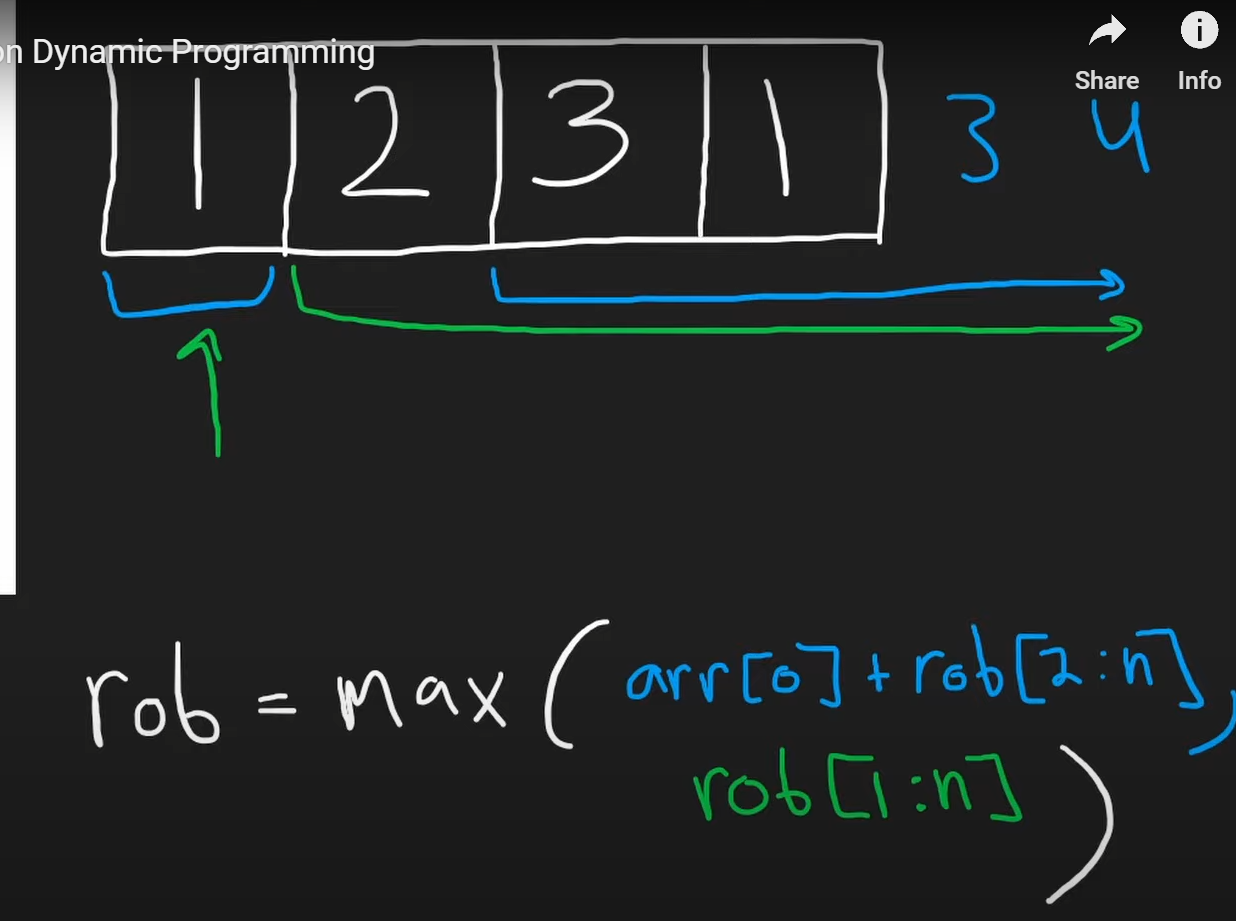 on Dynamic Programming
Share Info
1 2 3 1 3 4
rob = max ( arr[0] + rob[2:n],
rob[1:n] )